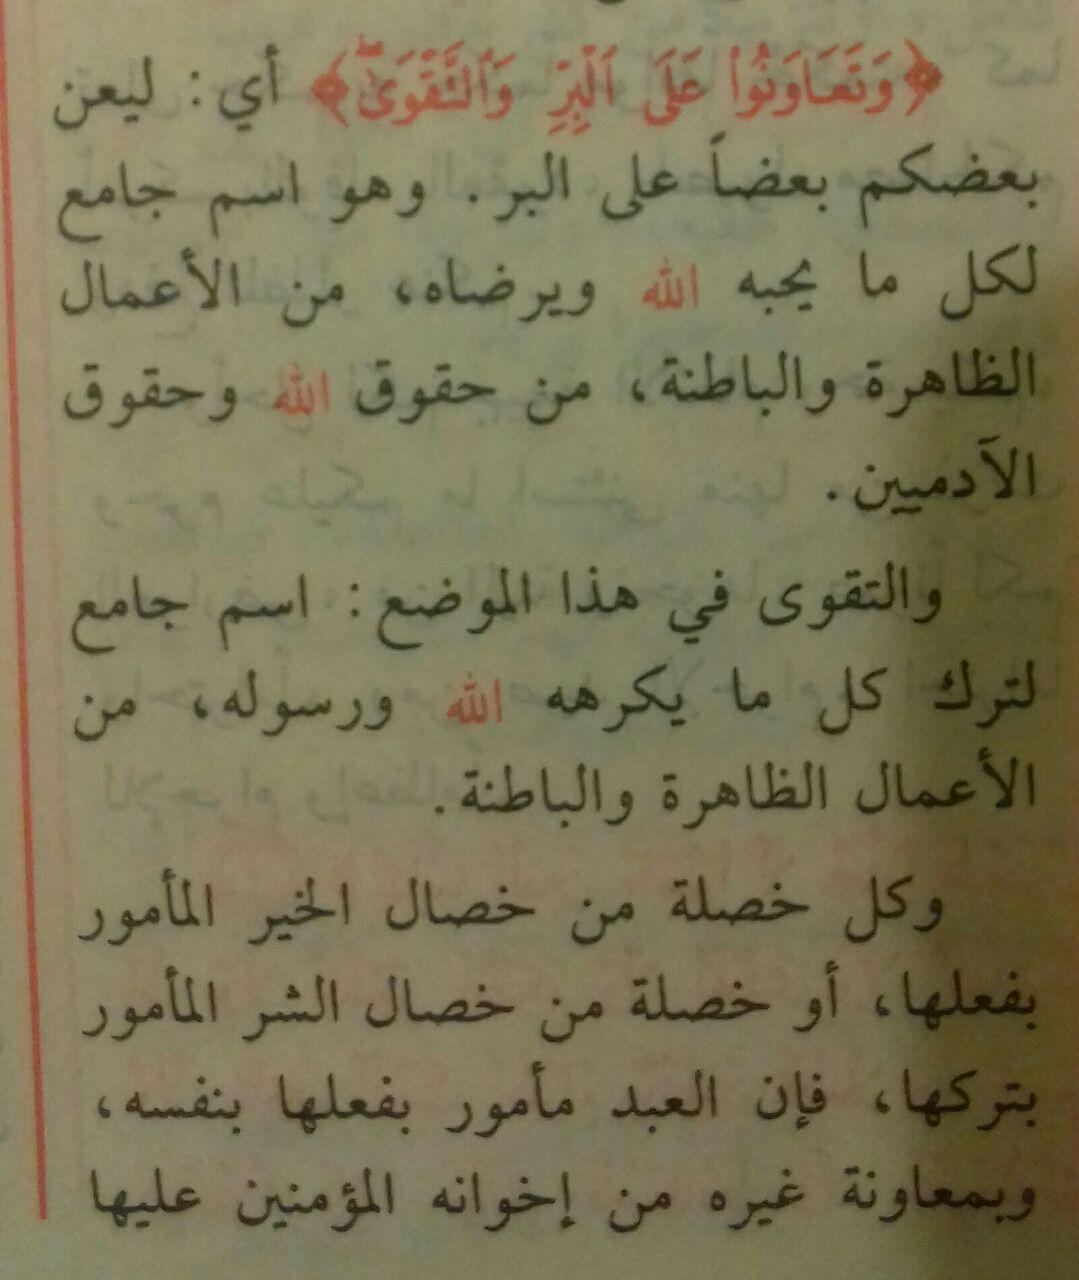 ﴿وَتَعَاوَنُوا۟ عَلَى ٱلْبِرِّ وَٱلتَّقْوَىٰۖ﴾ أي: ليعن
بعضكم بعضاً على البر. وهو اسم جامع
لكل ما يحبه الله ويرضاه، من الأعمال
الظاهرة والباطنة، من حقوق الله وحقوق
الآدميين.
والتقوى في هذا الموضع: اسم جامع
لترك كل ما يكرهه الله ورسوله، من
الأعمال الظاهرة والباطنة.
وكل خصلة من خصال الخير المأمور
بفعلها، أو خصلة من خصال الشر المأمور
بتركها، فإن العبد مأمور بفعلها بنفسه،
وبمعاونة غيره من إخوانه المؤمنين عليها